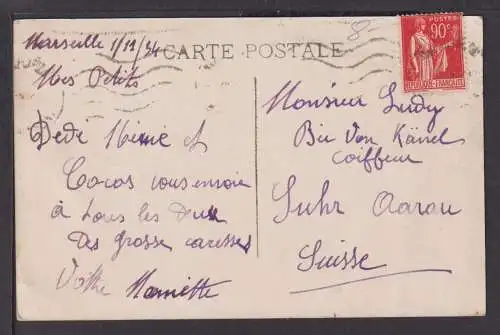 Marseille 1/12/34
CARTE POSTALE
8
POSTES
90c
REPUBLIQUE FRANÇAISE
Mes Petits
Dédé Mémé et
Cocos vous envoie
à tous les deux
des grosse caresses
Votre Mamiette
Monsieur Ludy
Bei Von Känel
Coiffeur
Suhr Aarau
Suisse